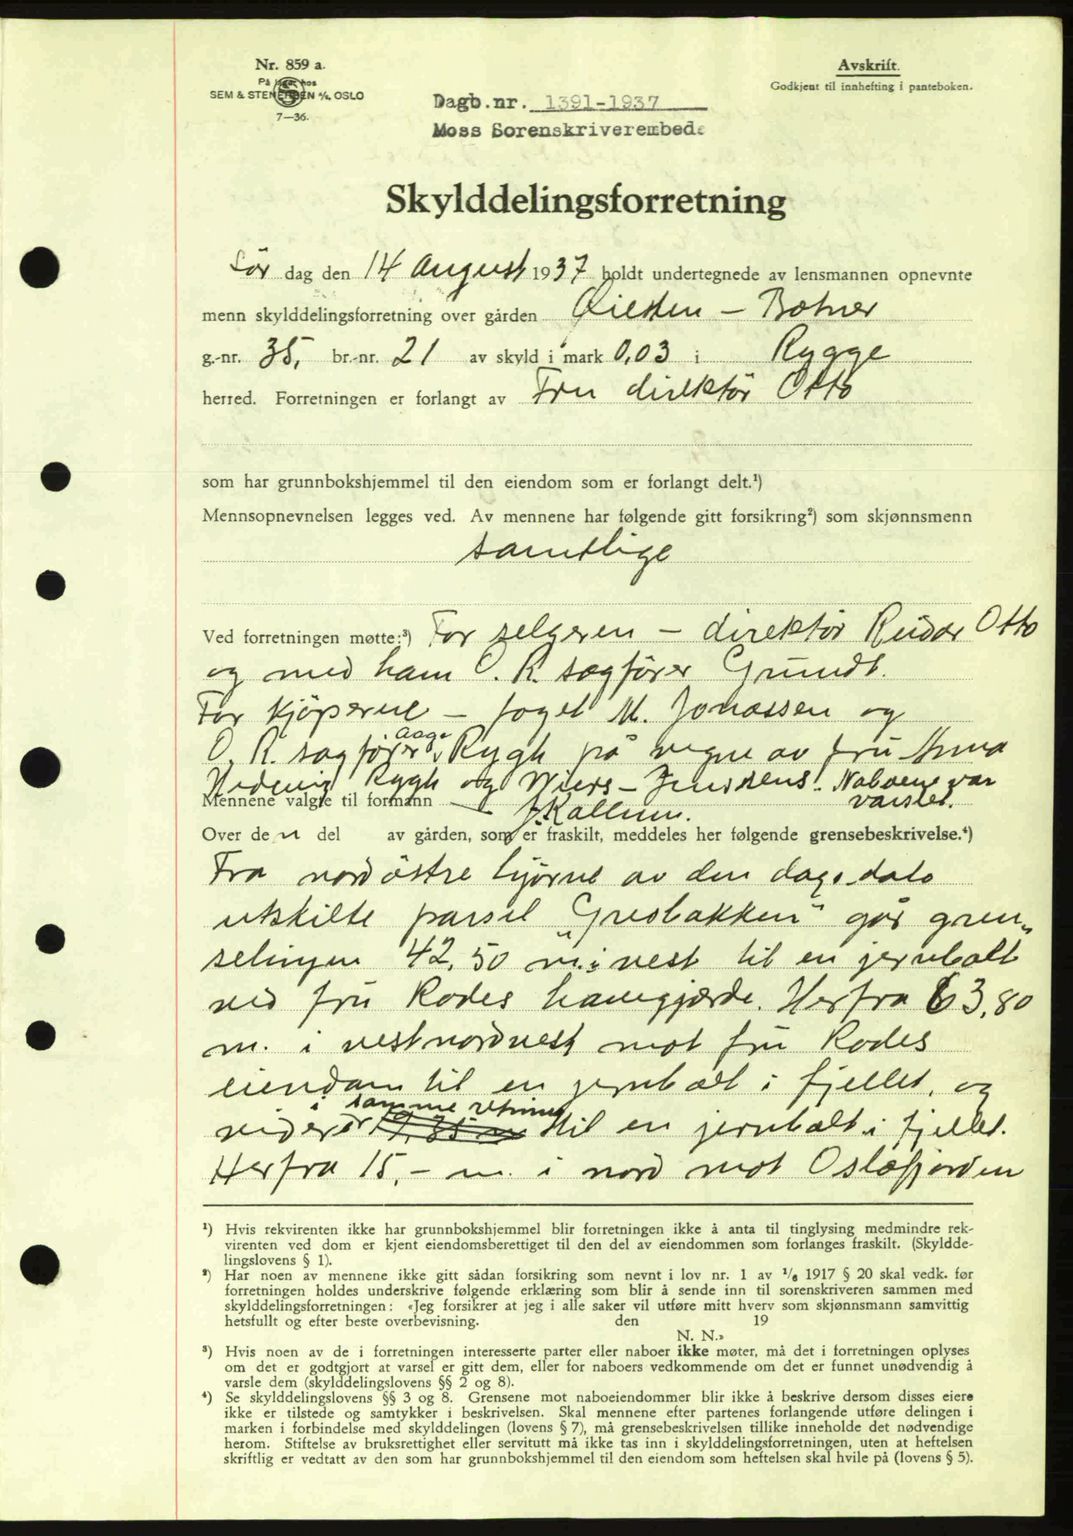 Nr. 859 a.
På lager hos
SEM & STENERSEN A/S, OSLO
7—36.
Avskrift.
Godkjent til innhefting i panteboken.
Dagb.nr. 1391-1937
Moss Sorenskriverembede
Skylddelingsforretning
Lør dag den 14 August 1937 holdt undertegnede av lensmannen opnevnte
menn skylddelingsforretning over gården - Botner
g.-nr. 35, br.-nr. 21 av skyld i mark 0,03 i Rygge
herred. Forretningen er forlangt av Fru direktör Otto
som har grunnbokshjemmel til den eiendom som er forlangt delt.¹)
Mennsopnevnelsen legges ved. Av mennene har følgende gitt forsikring²) som skjønnsmenn
samtlige
Ved forretningen møtte:³) For selgeren - direktör Reidar Otto
og med ham O. R. sagförer Grundt.
For kjöperne - foget M. Jonassen og
O. R. sagförer Aage Rygh på vegne av fru Anna
Hedevig Rygh og Wiers-Jenssens. Naboene var
varslet.
Mennene valgte til formann J. Kallum.
Over den del av gården, som er fraskilt, meddeles her følgende grensebeskrivelse.⁴)
Fra nordöstre hjörne av den dags dato
utskilte parsel "Grosbakken" går gren-
selinjen 42,50 m. i vest til en jernbolt
ved fru Rodes havegjærde. Herfra 63,80
m. i vestnordvest mot fru Rodes
eiendom til en jernbolt i fjellet, og
videre i samme retning til en jernbolt i fjellet.
Herfra 15,- m. i nord mot Oslofjorden
¹) Hvis rekvirenten ikke har grunnbokshjemmel blir forretningen ikke å anta til tinglysing medmindre rek-
virenten ved dom er kjent eiendomsberettiget til den del av eiendommen som forlanges fraskilt. (Skyldde-
lingslovens § 1).
²) Har noen av mennene ikke gitt sådan forsikring som nevnt i lov nr. 1 av ¹/₆ 1917 § 20 skal vedk. før
forretningen holdes underskrive følgende erklæring som blir å sende inn til sorenskriveren sammen med
skylddelingsforretningen: «Jeg forsikrer at jeg i alle saker vil utføre mitt hverv som skjønnsmann samvittig
hetsfullt og efter beste overbevisning. den 19
N. N.»
³) Hvis noen av de i forretningen interesserte parter eller naboer ikke møter, må det i forretningen oplyses
om det er godtgjort at varsel er gitt dem, eller for naboers vedkommende om det er funnet unødvendig å
varsle dem (skylddelingslovens §§ 2 og 8).
⁴) Se skylddelingslovens §§ 3 og 8. Grensene mot naboeiendommer blir ikke å beskrive dersom disses eiere
ikke er tilstede og samtykker i beskrivelsen. Skal mennene efter partenes forlangende utføre delingen i
marken i forbindelse med skylddelingen (lovens § 7), må grensebeskrivelsen tillike inneholde det nødvendige
herom. Stiftelse av bruksrettighet eller servitutt må ikke tas inn i skylddelingsforretningen, uten at heftelsen
skriftlig er vedtatt av den som har grunnbokshjemmel til den eiendom som heftelsen skal hvile på (lovens § 5).